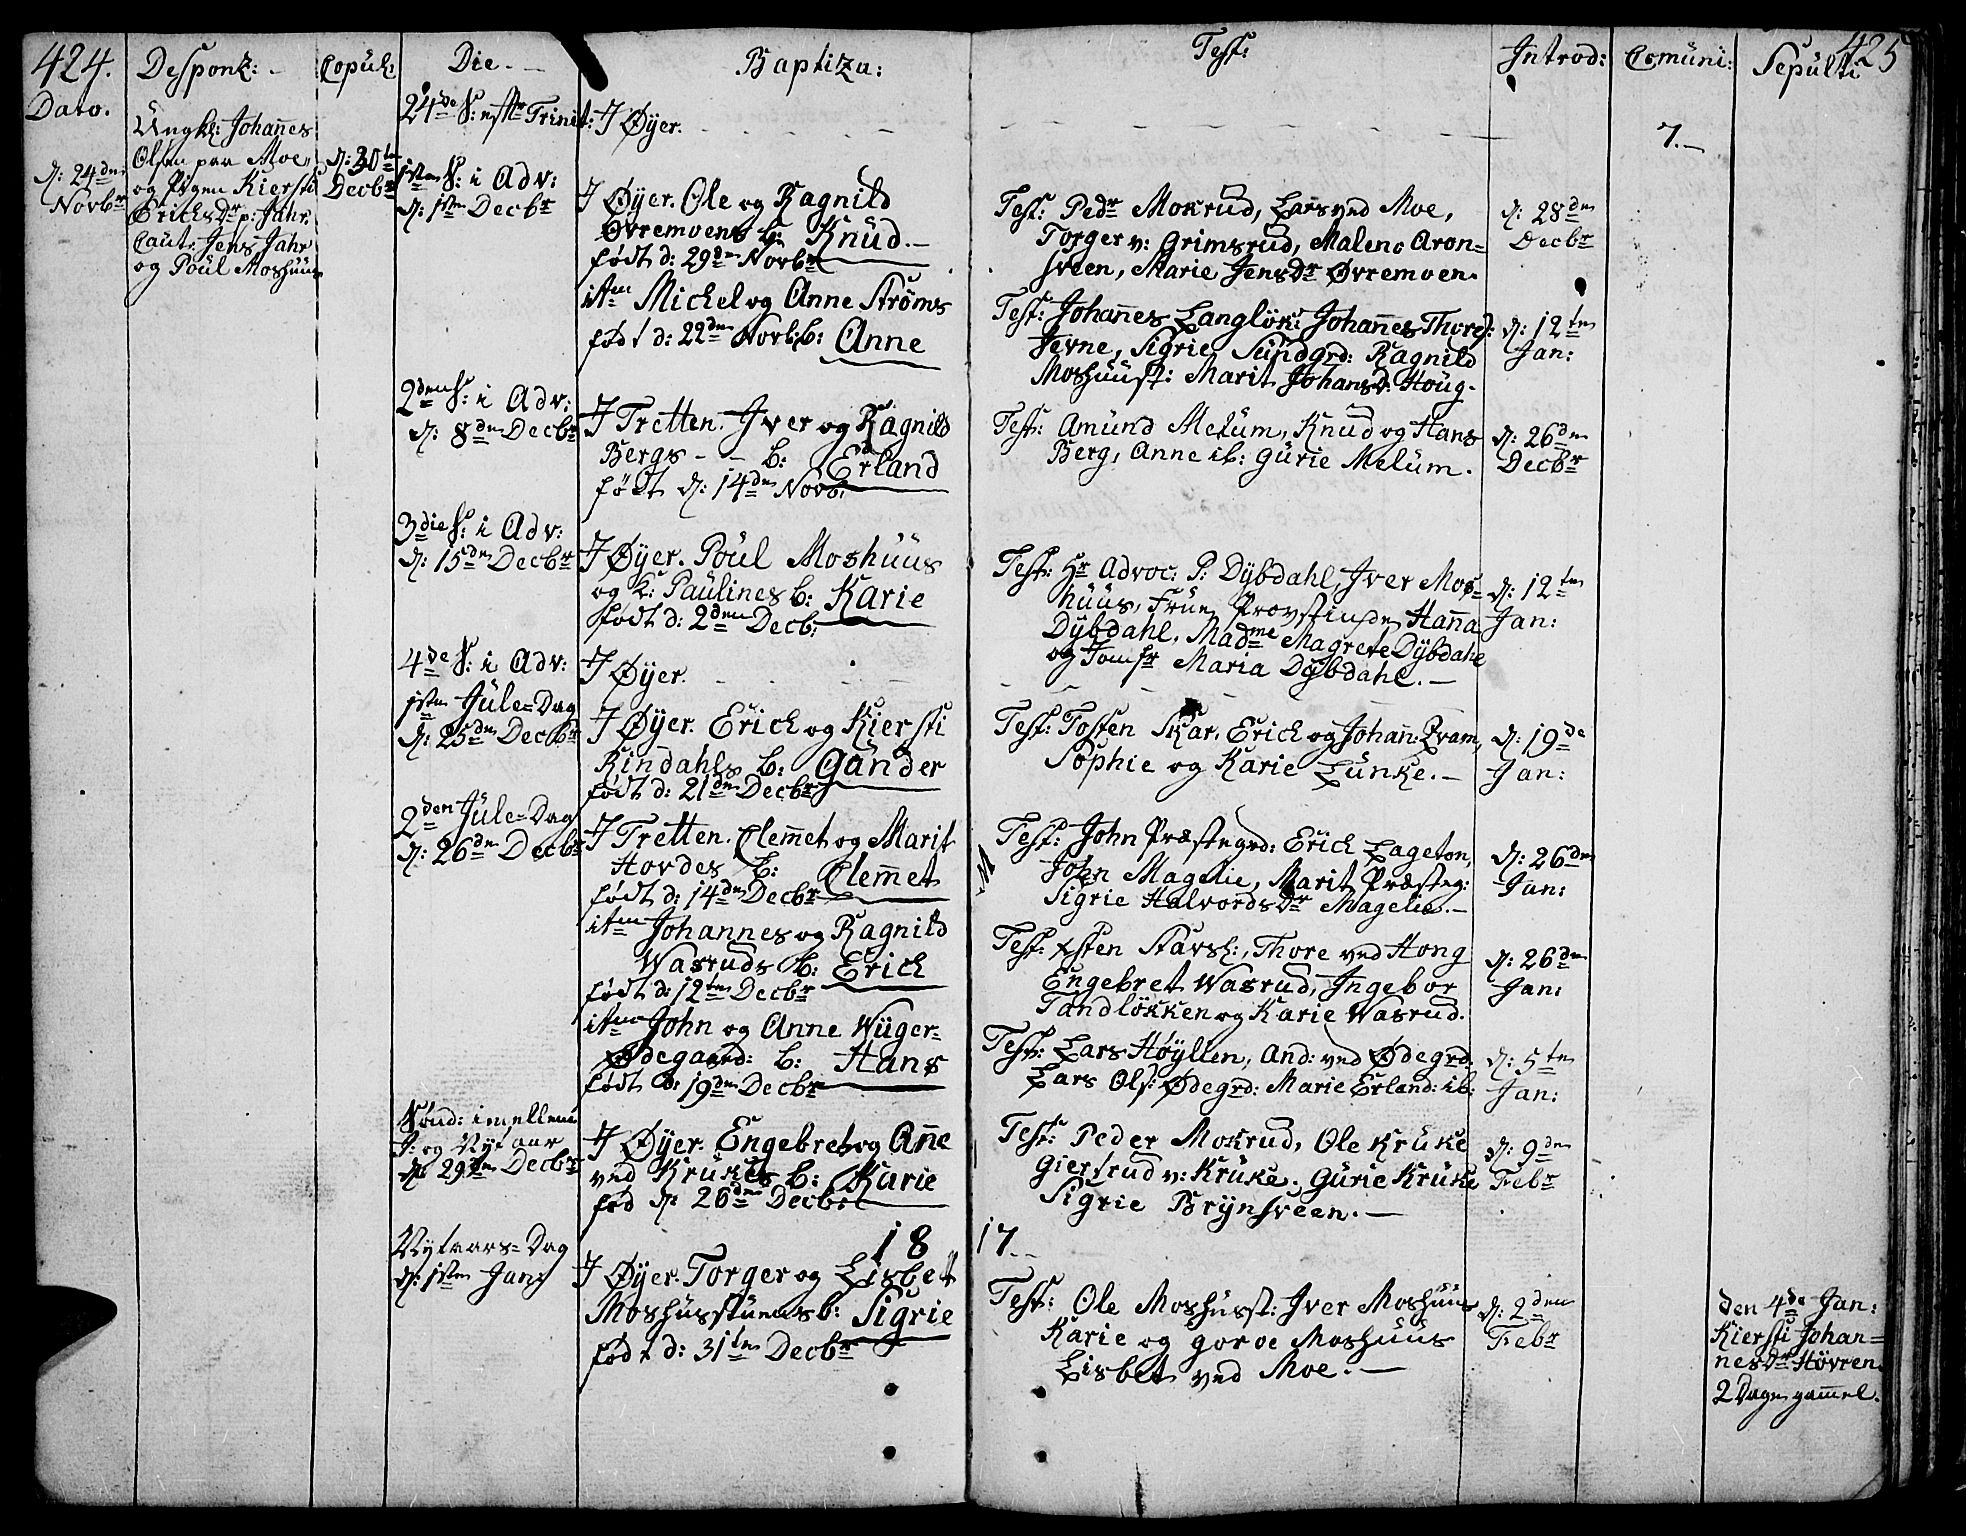 424.
Desponz:
Copul:
Die.
Baptiza:
Test:
Introd:
Comuni:
Sepulti
425
Dato.
d: 24de
Novbr
Ungkl: Johannes
Olsen paa Moe,
og Pigen Kiersti
Erichsdr p: Jahr.
Caut: Jens Jahr
og Poul Moshuus
d: 30te
Decbr
24de S: eftr Trinit:
I Øyer.
7.
1sten S: i Adv:
d: 1sten Decbr
I Øyer. Ole og Ragnild
Øvremoens b: Knud.
født d: 29de Novbr
Test: Pedr Mokrud, Lars ved Moe,
Torger v: Grimsrud, Malene Aron=
sveen, Marie Jensdr Øvremoen.
d: 28de
Decbr
iten Michel og Anne Strøms
født d: 22de Novb: b: Anne
Test: Johannes Langløk: Johannes Thord:
Jevne, Sigrie Sundgrd: Ragnild
Moshuust: Marit Johansd: Houg.
d: 12te
Jan:
2den S: i Adv:
d: 8de Decbr
I Tretten. Iver og Ragnild
Bergs - - b: Erland
født d: 14de Novb:
Test: Amund Melum, Knud og Hans
Berg, Anne ib: Gurie Melum.
d: 26de
Decbr
3die S: i Adv:
d: 15de Decbr
I Øyer. Poul Moshuus
og K: Paulines b: Karie
født d: 2den Decb:
Test: Hr Advoc: P: Dybdahl, Iver Mos=
huus, Frue Provstinde Hanna
Dybdahl, Madme Magrete Dybdahl
og Jomfr Maria Dybdahl.
d: 12te
Jan:
4de S: i Adv:
I Øyer.
1sten Jule=Dag
d: 25de Decbr
I Øyer. Erich og Kiersti
Rindahls b: Gunder
født d: 21de Decbr
Test: Tosten Skar, Erich og Johan: Lram,
Sophie og Karie Lunke.
d: 19de
Jan:
2den Jule=Dag
d: 26de Decbr
I Tretten. Clemmet og Marit
Hovdes b: Clemmet
født d: 14de Decbr
Test: John Præstegrd: Erich Lageton,
John Magelie, Marit Præsteg:
Sigrie Halvordsdr Magelie.
d: 26de
Jan:
iten Johannes og Ragnild
Wasruds b: Erich
født d: 12te Decbr
Test: Østen Stavsl:, Thore ved Hong
Engebret Wasrud, Ingebor
Tandløkken og Karie Wasrud.
d: 26de
Jan:
iten John og Anne Wüger=
Ødegaard: b: Hans
født d: 19de Decbr
Test: Lars Høyllen, And: ved Ødegrd.
Lars Ols: Ødegrd: Marie Erland: ib:
d: 5te
Jan:
Sønd: imellem
J: og Nyt aar
d: 29de Decbr
I Øyer. Engebret og Anne
ved Krukes b: Karie
fød d: 26de Decbr
Test: Peder Mokrud, Ole Kruke
Giertrud v: Kruke. Gurie Kruke
Sigrie Brynsveen.
d: 9de
Febr
1817.
Nytaars=Dag
d: 1sten Jan:
I Øyer. Torger og Lisbet
Moshusstuens b: Sigrie
født d: 31te Decbr
Test: Ole Moshust: Iver Moshuus
Karie og goroe Moshuus
Lisbet ved Moe.
d: 2den
Febr
den 4de Jan:
Kiersti Johan=
nesdr Høvren.
2 Dage gammel.